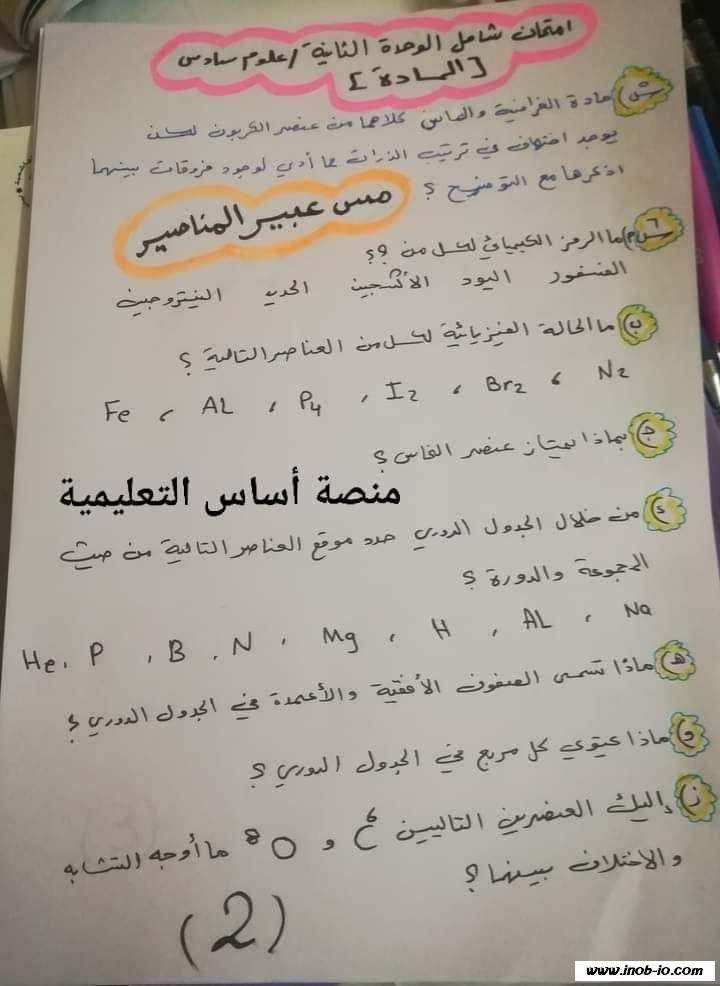 امتحان شامل الوحدة الثانية / علوم سادس
[المادة]
س٥) مادة الغرافيت والماس كلاهما من عنصر الكربون لكن
يوجد اختلاف في ترتيب الذرات مما أدى لوجود فروقات بينهما
اذكرها مع التوضيح ؟
مس عبير المناصير
س٦ أ) ما الرمز الكيميائي لكل من ؟؟
الفسفور اليود الأكسجين الحديد النيتروجين
ب) ما الحالة الفيزيائية لكل من العناصر التالية ؟
Fe ، AL ، P4 ، I2 ، Br2 ، N2
ج) بماذا يمتاز عنصر النحاس ؟
منصة أساس التعليمية
د) من خلال الجدول الدوري حدد موقع العناصر التالية من حيث
المجموعة والدورة ؟
He ، P ، B ، N ، Mg ، H ، AL ، Na
هـ) ماذا تسمى الصفوف الأفقية والأعمدة في الجدول الدوري ؟
و) ماذا يحتوي كل مربع في الجدول الدوري ؟؟
ز) إليك العنصرين التاليين ⁶C و ⁸O ما أوجه التشابه
والاختلاف بينهما ؟
(2)
www.inob-io.com